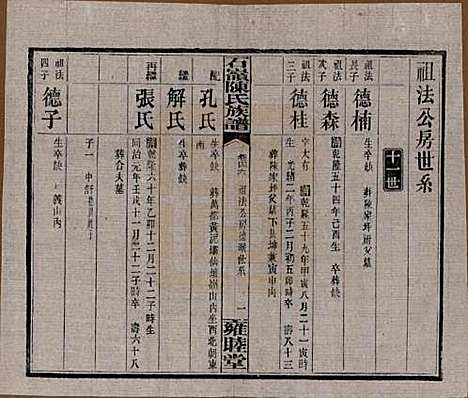 祖法公房世系
十一世
祖法
長子
德楠
生卒缺
葬陳家坪
祖法
次子
德森
乾隆五十四年己酉生 卒葬缺
祖法
三子
德桂
字大有 乾隆五十九年甲寅八月二十一寅時
生 光緒二年丙子二月初五卯時卒 壽八十三
葬陳家坪父墓下艮坤兼寅申向
石嶺陳氏族譜
祖法公房德派世系
一
雍睦堂
配
孔氏
生卒缺 葬萬都黃泥壩仙壇嶺山内坐西北朝東
南
繼
解氏
生卒葬缺
再繼
張氏
乾隆六十年乙卯十二月二十二子時生
同治元年壬戌十一月二十二子時卒 壽六十八
葬合夫墓
子一
祖法
四子
德子
生卒缺 義山内